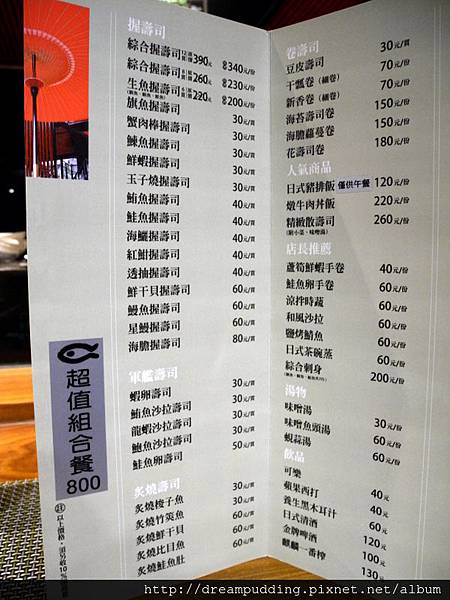 握壽司
綜合握壽司 12貫 原價390元 ®340元/份
綜合握壽司 260元 ®230元/份
生魚握壽司 220元 ®200元/份
旗魚握壽司 30元/貫
蟹肉棒握壽司 30元/貫
鰊魚握壽司 30元/貫
鮮蝦握壽司 30元/貫
玉子燒握壽司 30元/貫
鮪魚握壽司 40元/貫
鮭魚握壽司 40元/貫
海鱺握壽司 40元/貫
紅魽握壽司 40元/貫
透抽握壽司 40元/貫
鮮干貝握壽司 60元/貫
鰻魚握壽司 60元/貫
星鰻握壽司 60元/貫
海膽握壽司 80元/貫
軍艦壽司
蝦卵壽司 30元/貫
鮪魚沙拉壽司 30元/貫
龍蝦沙拉壽司 30元/貫
鮑魚沙拉壽司 30元/貫
鮭魚卵壽司 50元/貫
炙燒壽司
炙燒梭子魚 30元/貫
炙燒竹筴魚 30元/貫
炙燒鮮干貝 60元/貫
炙燒比目魚 60元/貫
炙燒鮭魚肚 60元/貫
超值組合餐
800
註 以上價格,須另收10%
卷壽司
豆皮壽司 30元/貫
干瓢卷(細卷) 70元/份
新香卷(細卷) 70元/份
海苔壽司卷 150元/份
海膽蘿蔓卷 150元/份
花壽司卷 180元/份
人氣商品
日式豬排飯 僅供午餐 120元/份
燉牛肉丼飯 220元/份
精緻散壽司 260元/份
(附小菜、味噌湯)
店長推薦
蘆筍鮮蝦手卷 40元/份
鮭魚卵手卷 60元/份
涼拌時蔬 60元/份
和風沙拉 60元/份
鹽烤鯖魚 60元/份
日式茶碗蒸 60元/份
綜合刺身 200元/份
湯物
味噌湯 30元/份
味噌魚頭湯 60元/份
蜆蒜湯 60元/份
飲品
可樂 40元
蘋果西打 40元
養生黑木耳汁 60元
日式清酒 120元
金牌啤酒 100元
麒麟一番榨 130元
http://dreampudding.pixnet.net/album